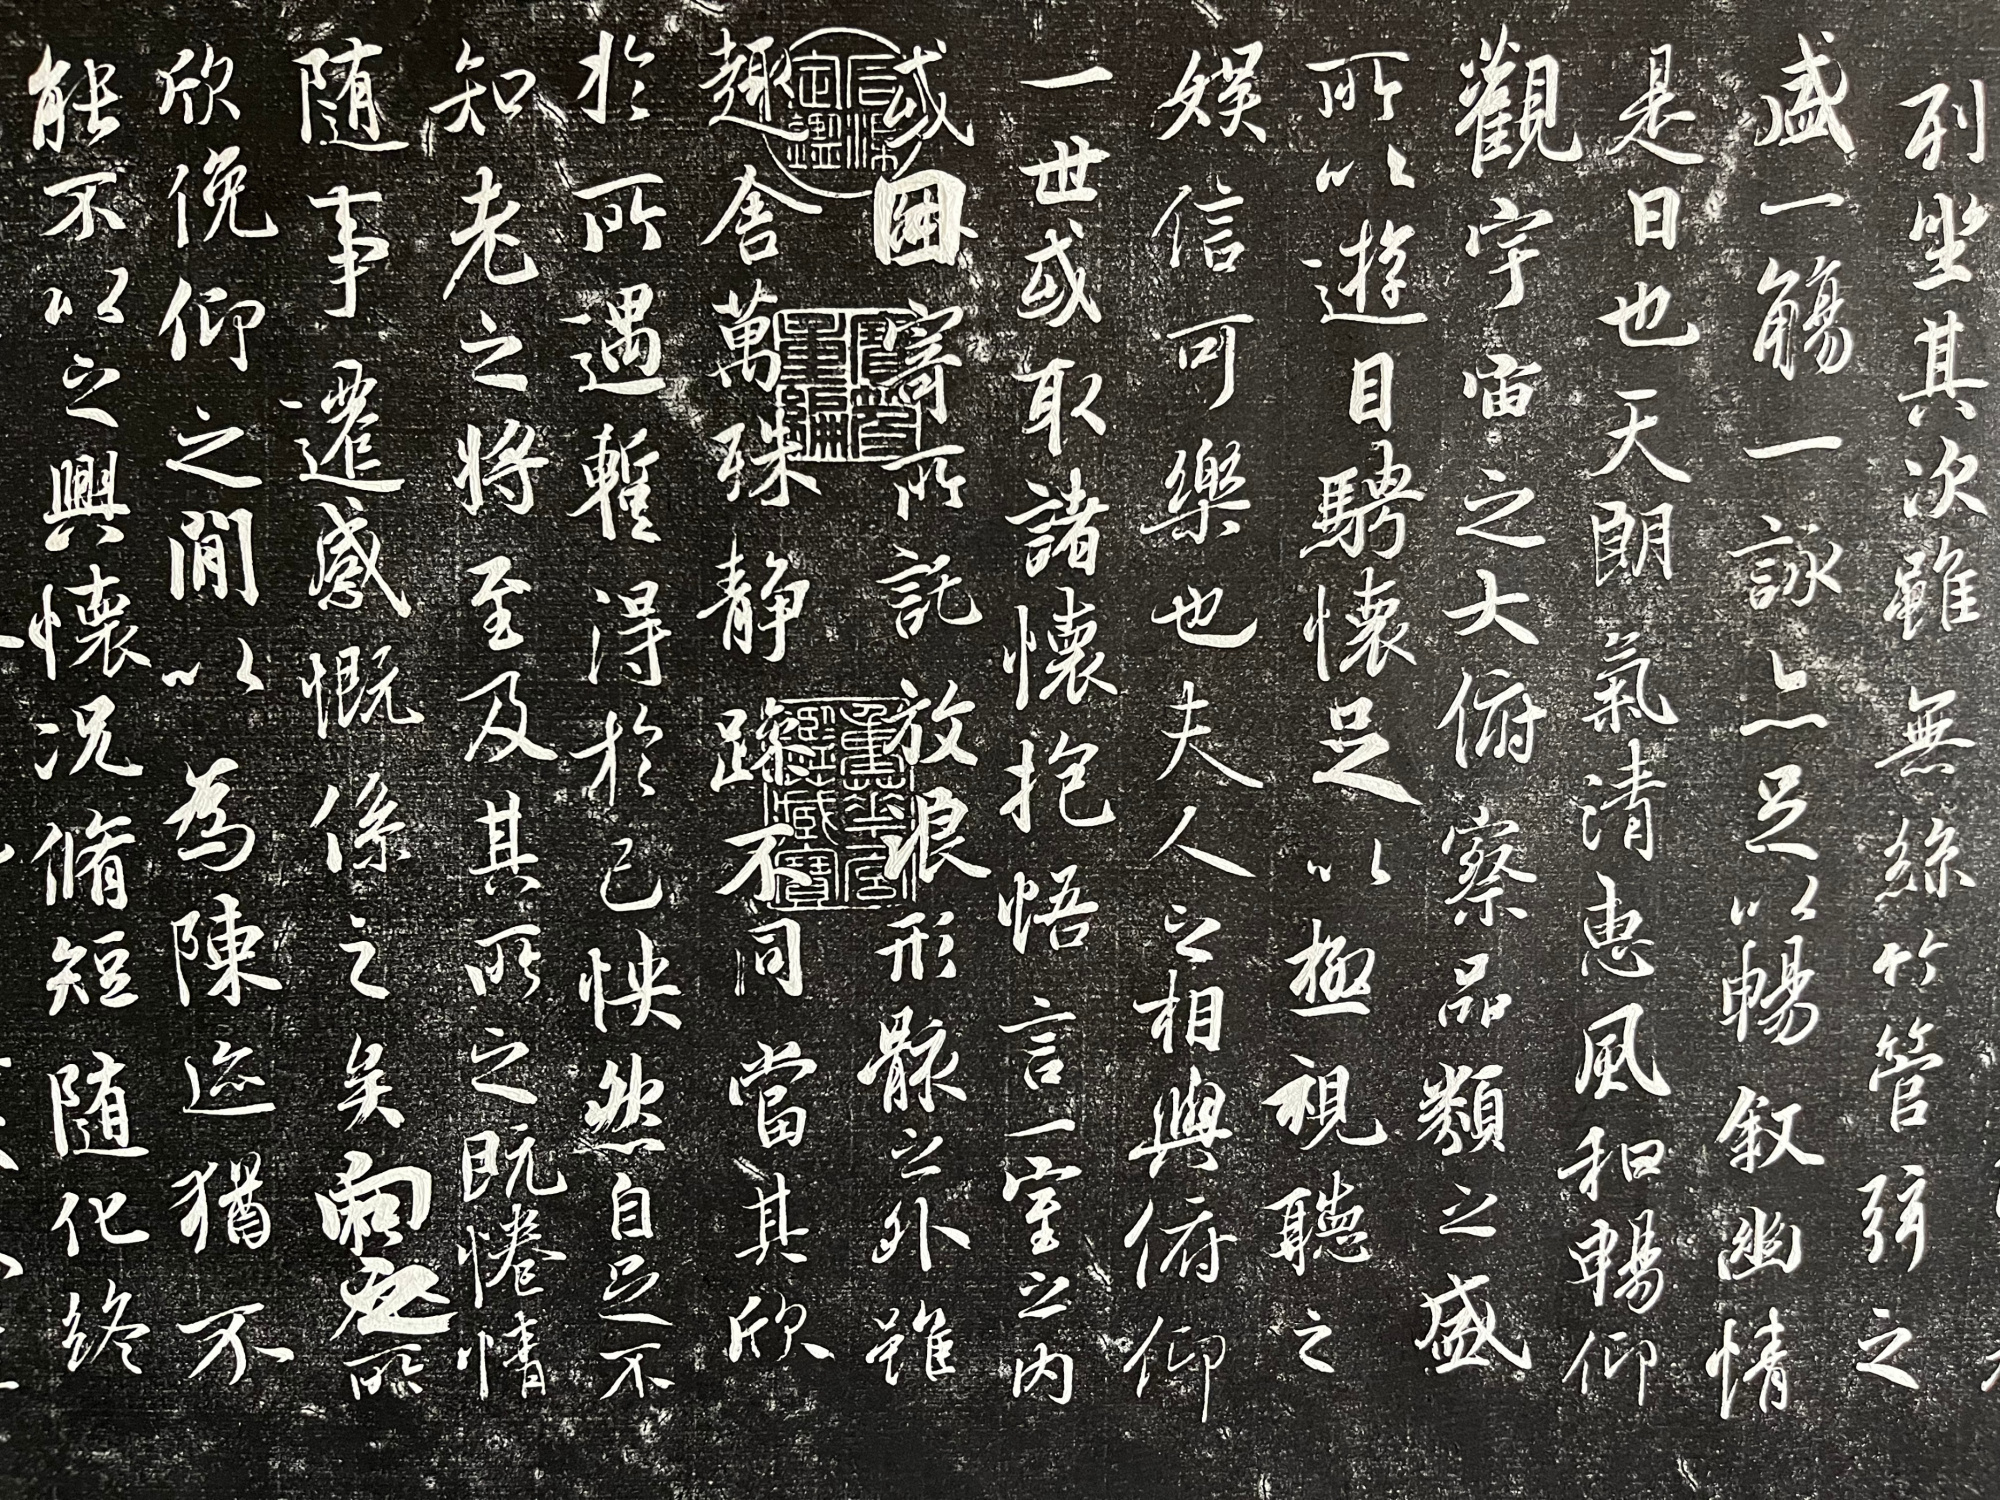 列坐其次雖無絲竹管弦之
盛一觴一詠亦足以暢叙幽情
是日也天朗氣清惠風和暢仰
觀宇宙之大俯察品類之盛
所以遊目騁懷足以極視聽之
娛信可樂也夫人之相與俯仰
一世或取諸懷抱悟言一室之内
或因寄所託放浪形骸之外雖
趣舍萬殊静躁不同當其欣
於所遇暫得於己怏然自足不
知老之將至及其所之既惓情
随事遷感慨係之矣向之所
欣俛仰之閒以為陳迹猶不
能不以之興懷況脩短随化終